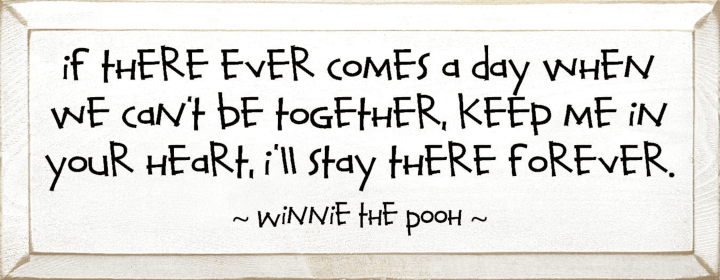 if tHERE EVER COMES a day WHEN
WE CaN't bE toGEtHER, KEEp ME iN
youR HEaRt, i'll Stay tHERE FoREVER.
~ WiNNiE tHE pooH ~